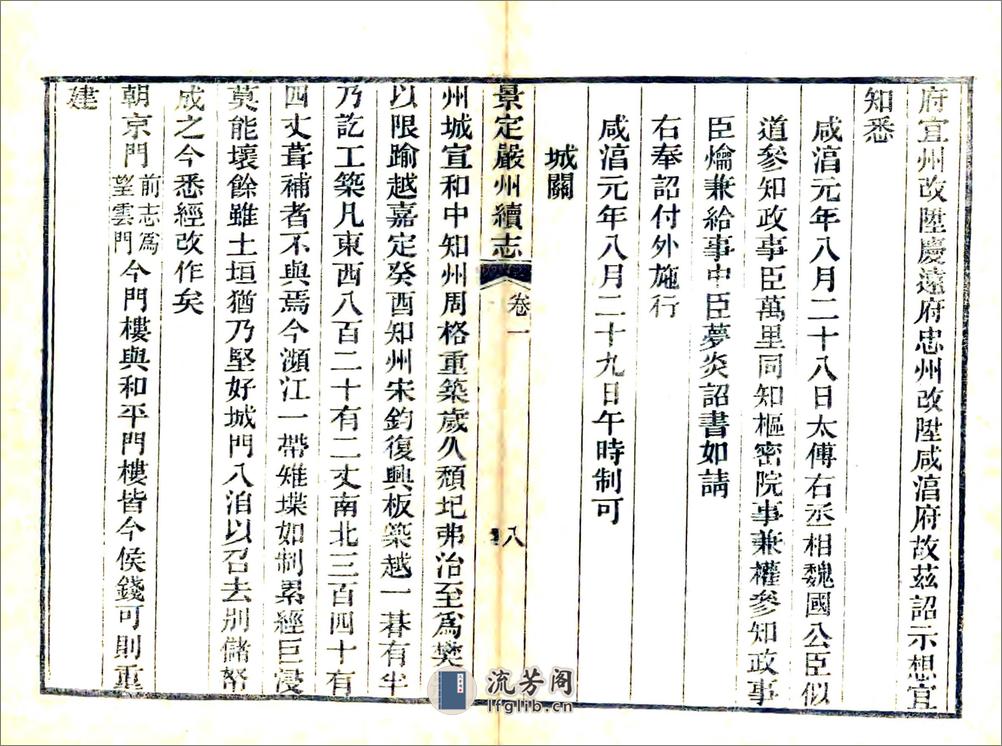 府宜州改陞慶遠府忠州改陞咸淳府故茲詔示想宜
知悉
咸淳元年八月二十八日太傅右丞相魏國公臣似
道參知政事臣萬里同知樞密院事兼權參知政事
臣爚兼給事中臣夢炎詔書如請
右奉詔付外施行
咸淳元年八月二十九日午時制可
城闕
景定嚴州續志 卷一 八
州城宣和中知州周格重築歲久頹圮弗治至爲樊
以限踰越嘉定癸酉知州宋鈞復興板築越一朞有半
乃訖工築凡東西八百二十有二丈南北三百四十有
四丈葺補者不與焉今瀕江一帶雉堞如制累經巨浸
莫能壞餘雖土垣猶乃堅好城門八洎以召去別儲帑
成之今悉經改作矣
朝京門前志爲望雲門今門樓與和平門樓皆今侯錢可則重
建
流芳阁
lfglib.cn